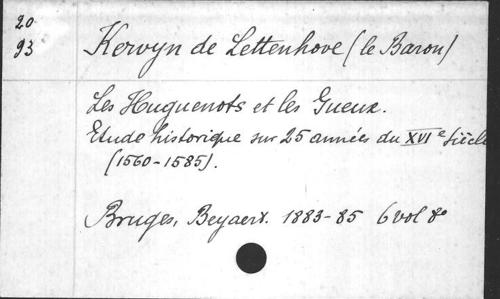 20
93
Kervyn de Lettenhove (le Baron)
Les Huguenots et les Gueux.
Etude historique sur 25 années du XVIe Siècle
(1560-1585).
Bruges, Beyaert. 1883-85 6 vol 8o